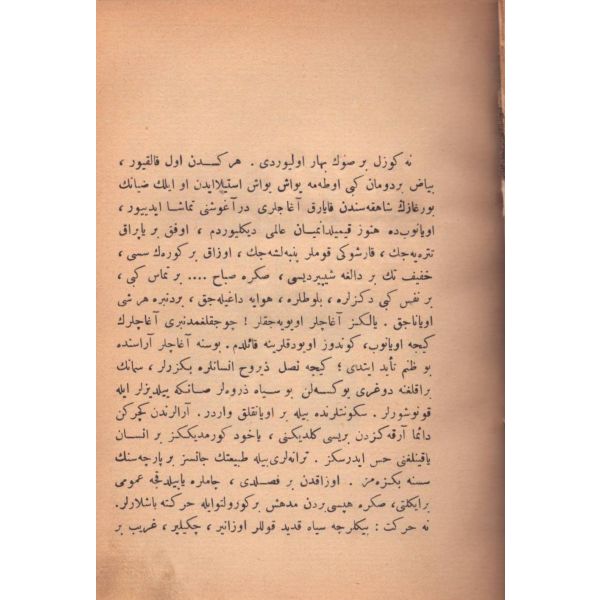 نه كوزل بر صوك بهار اوليوردى . هركسدن اول قالقيور ،
بياض بردومان كبى اوطه‌مه يواش يواش استيلاايدن او ايلك ضيانك
بورغازك شاهقه‌سندن قايارق آغاجلرى درآغوشنى تماشا ايدييور ،
اويانوب‌ده هنوز قيميلدانميان عالمى ديكليوردم . اوفق بر ياپراق
تتره‌يه‌جك ، قارشوكى قوملر پنبه‌لشه‌جك ، اوزاق بر كوره‌ك سسى ،
خفيف تك بر دالغه شيپيرديسى ، صكره صباح .... بر تماس كبى ،
بر نفس كبى دكزلره ، بلوطلره ، هوايه داغيله‌جق ، بردنبره هر شى
اوياناجق . يالكز آغاچلر اويويه‌جقلر ! چوجقلغمدنبرى آغاچلرك
كيجه اويانوب ، كوندوز اويودقلرينه قائلدم . بوسنه آغاچلر آراسنده
بو ظنم تأيد ايتدى ؛ كيجه نصل ذيروح انسانلره بكزرلر ، سمانك
براقلغنه دوغرى يوكسه‌لن بو سياه ذروه‌لر صانكه ييلديزلر ايله
قونوشورلر . سكونتلرنده بيله بر اويانقلق واردر . آرالرندن كچركن
دائما آرقه‌كزدن بريسى كلديكنى ، ياخود كورمديككز بر انسان
ياقينلغنى حس ايدرسكز . ترانه‌لرى‌بيله طبيعتك جانسز بر پارچه‌سنك
سسنه بكزه‌مز . اوزاقدن بر فصلدى ، چاملره ياييلدقجه عمومى
برايكلتى ، صكره هپسى‌بردن مدهش بركورولتوايله حركته باشلارلر .
نه حركت : بيكلرجه سياه قديد قوللر اوزانير ، چكيلير ، غريب بر